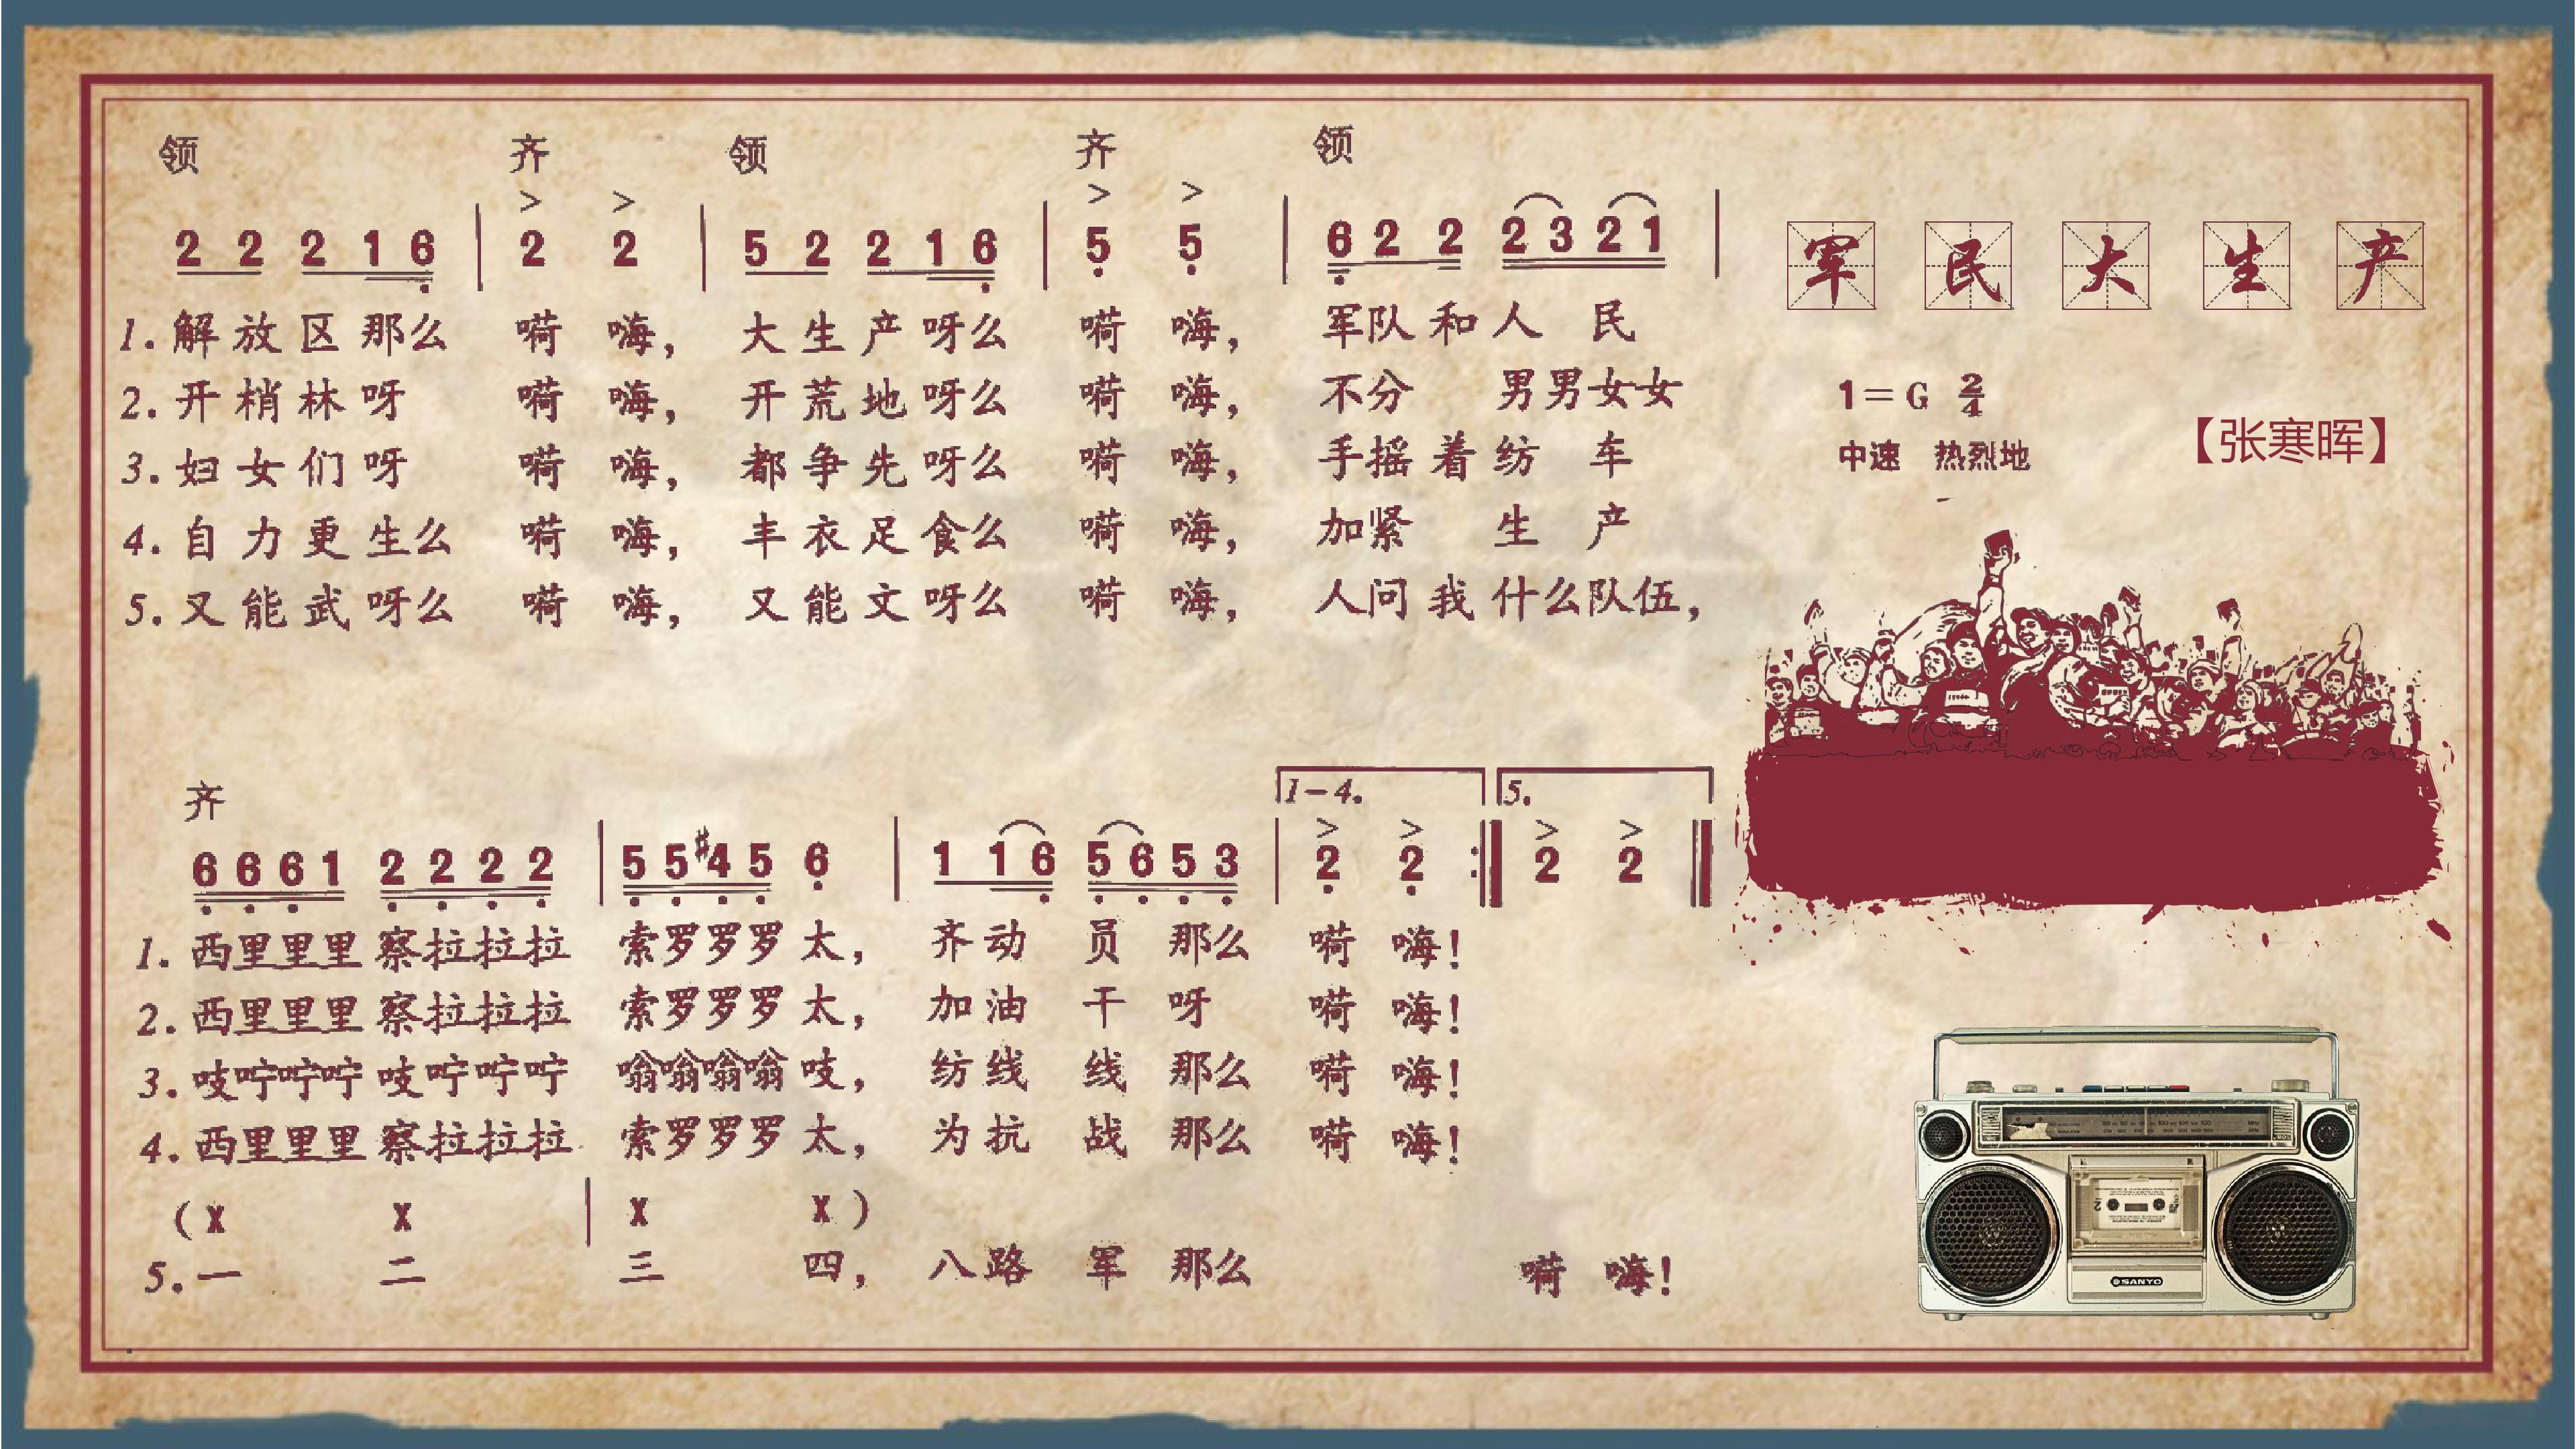 领 齐 领 齐 领
> > > >
2 2 2 1 6 | 2 2 | 5 2 2 1 6 | 5 5 | 6 2 2 2 3 2 1 |
1. 解放区那么 嗬 嗨, 大生产呀么 嗬 嗨, 军队和人 民
2. 开梢林呀 嗬 嗨, 开荒地呀么 嗬 嗨, 不分 男男女女
3. 妇女们呀 嗬 嗨, 都争先呀么 嗬 嗨, 手摇着纺 车
4. 自力更生么 嗬 嗨, 丰衣足食么 嗬 嗨, 加紧 生 产
5. 又能武呀么 嗬 嗨, 又能文呀么 嗬 嗨, 人问我什么队伍,
军民大生产
1=G 2/4
中速 热烈地
【张寒晖】
齐 1-4. 5.
> > > >
6 6 6 1 2 2 2 2 | 5 5 #4 5 6 | 1 1 6 5 6 5 3 | 2 2 :‖ 2 2 ‖
1. 西里里里 察拉拉拉 索罗罗罗 太, 齐动 员 那么 嗬 嗨!
2. 西里里里 察拉拉拉 索罗罗罗 太, 加油 干 呀 嗬 嗨!
3. 吱咛咛咛 吱咛咛咛 嗡嗡嗡嗡 吱, 纺线 线 那么 嗬 嗨!
4. 西里里里 察拉拉拉 索罗罗罗 太, 为抗 战 那么 嗬 嗨!
(X X | X X)
5. 一 二 三 四, 八路 军 那么 嗬 嗨!
SANYO